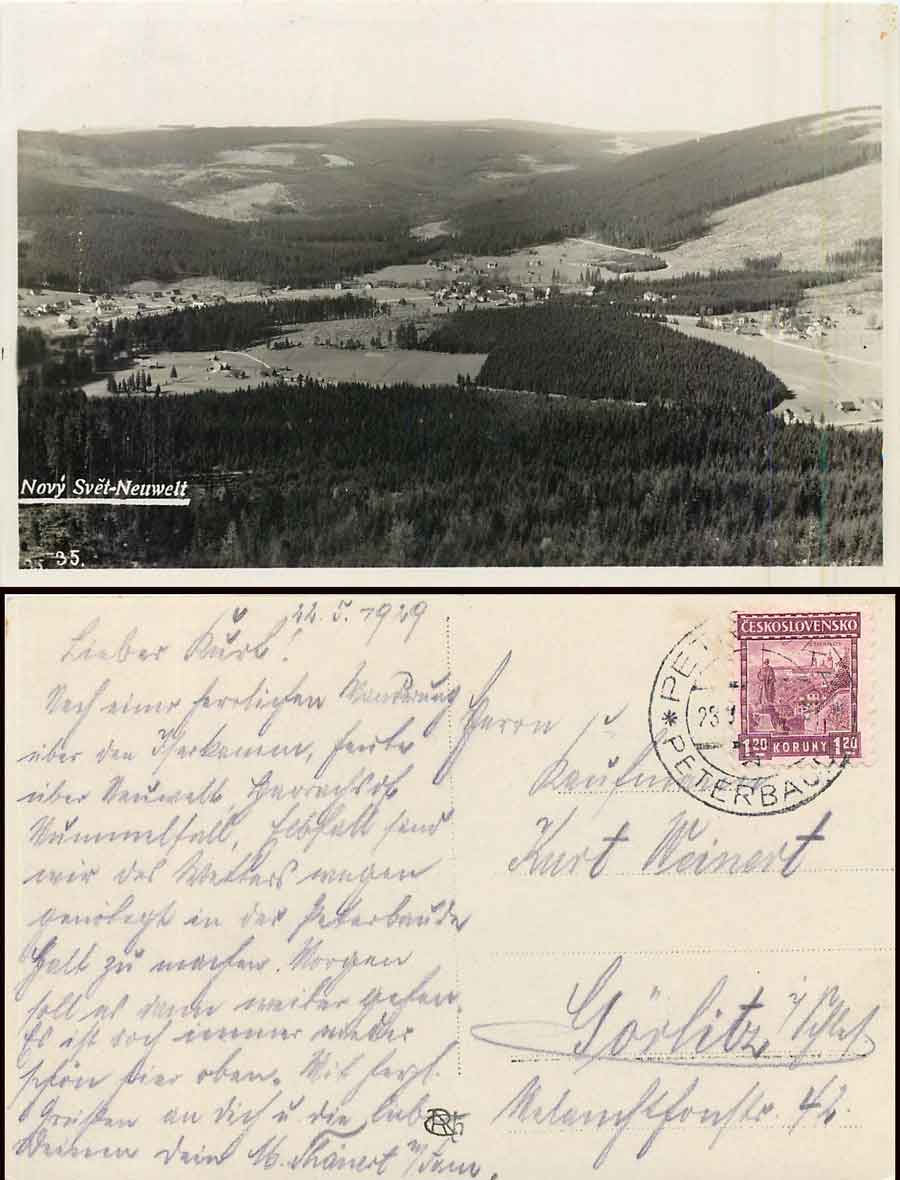 Nový Svět-Neuwelt
35.
22. 5. 1929
Lieber Kurt!
Nach einer herrlichen Wanderung
über den Iserkamm, heute
über Neuwelt, Harrachsdf.
Mummelfall, Elbfall sind
wir des Wetters wegen
genötigt in der Peterbaude
Halt zu machen. Morgen
soll es dann weiter gehen.
Es ist doch immer wieder
schön hier oben. Mit herzl.
Grüßen an Dich u die lieben
Deinen Dein M. Thänert u/Fam.
Herrn
Kaufmann
Kurt Weinert
Görlitz i/Schles
Melanchthonstr. 42.
ČESKOSLOVENSKO
1.20 KORUNY 1.20
PETERBAU